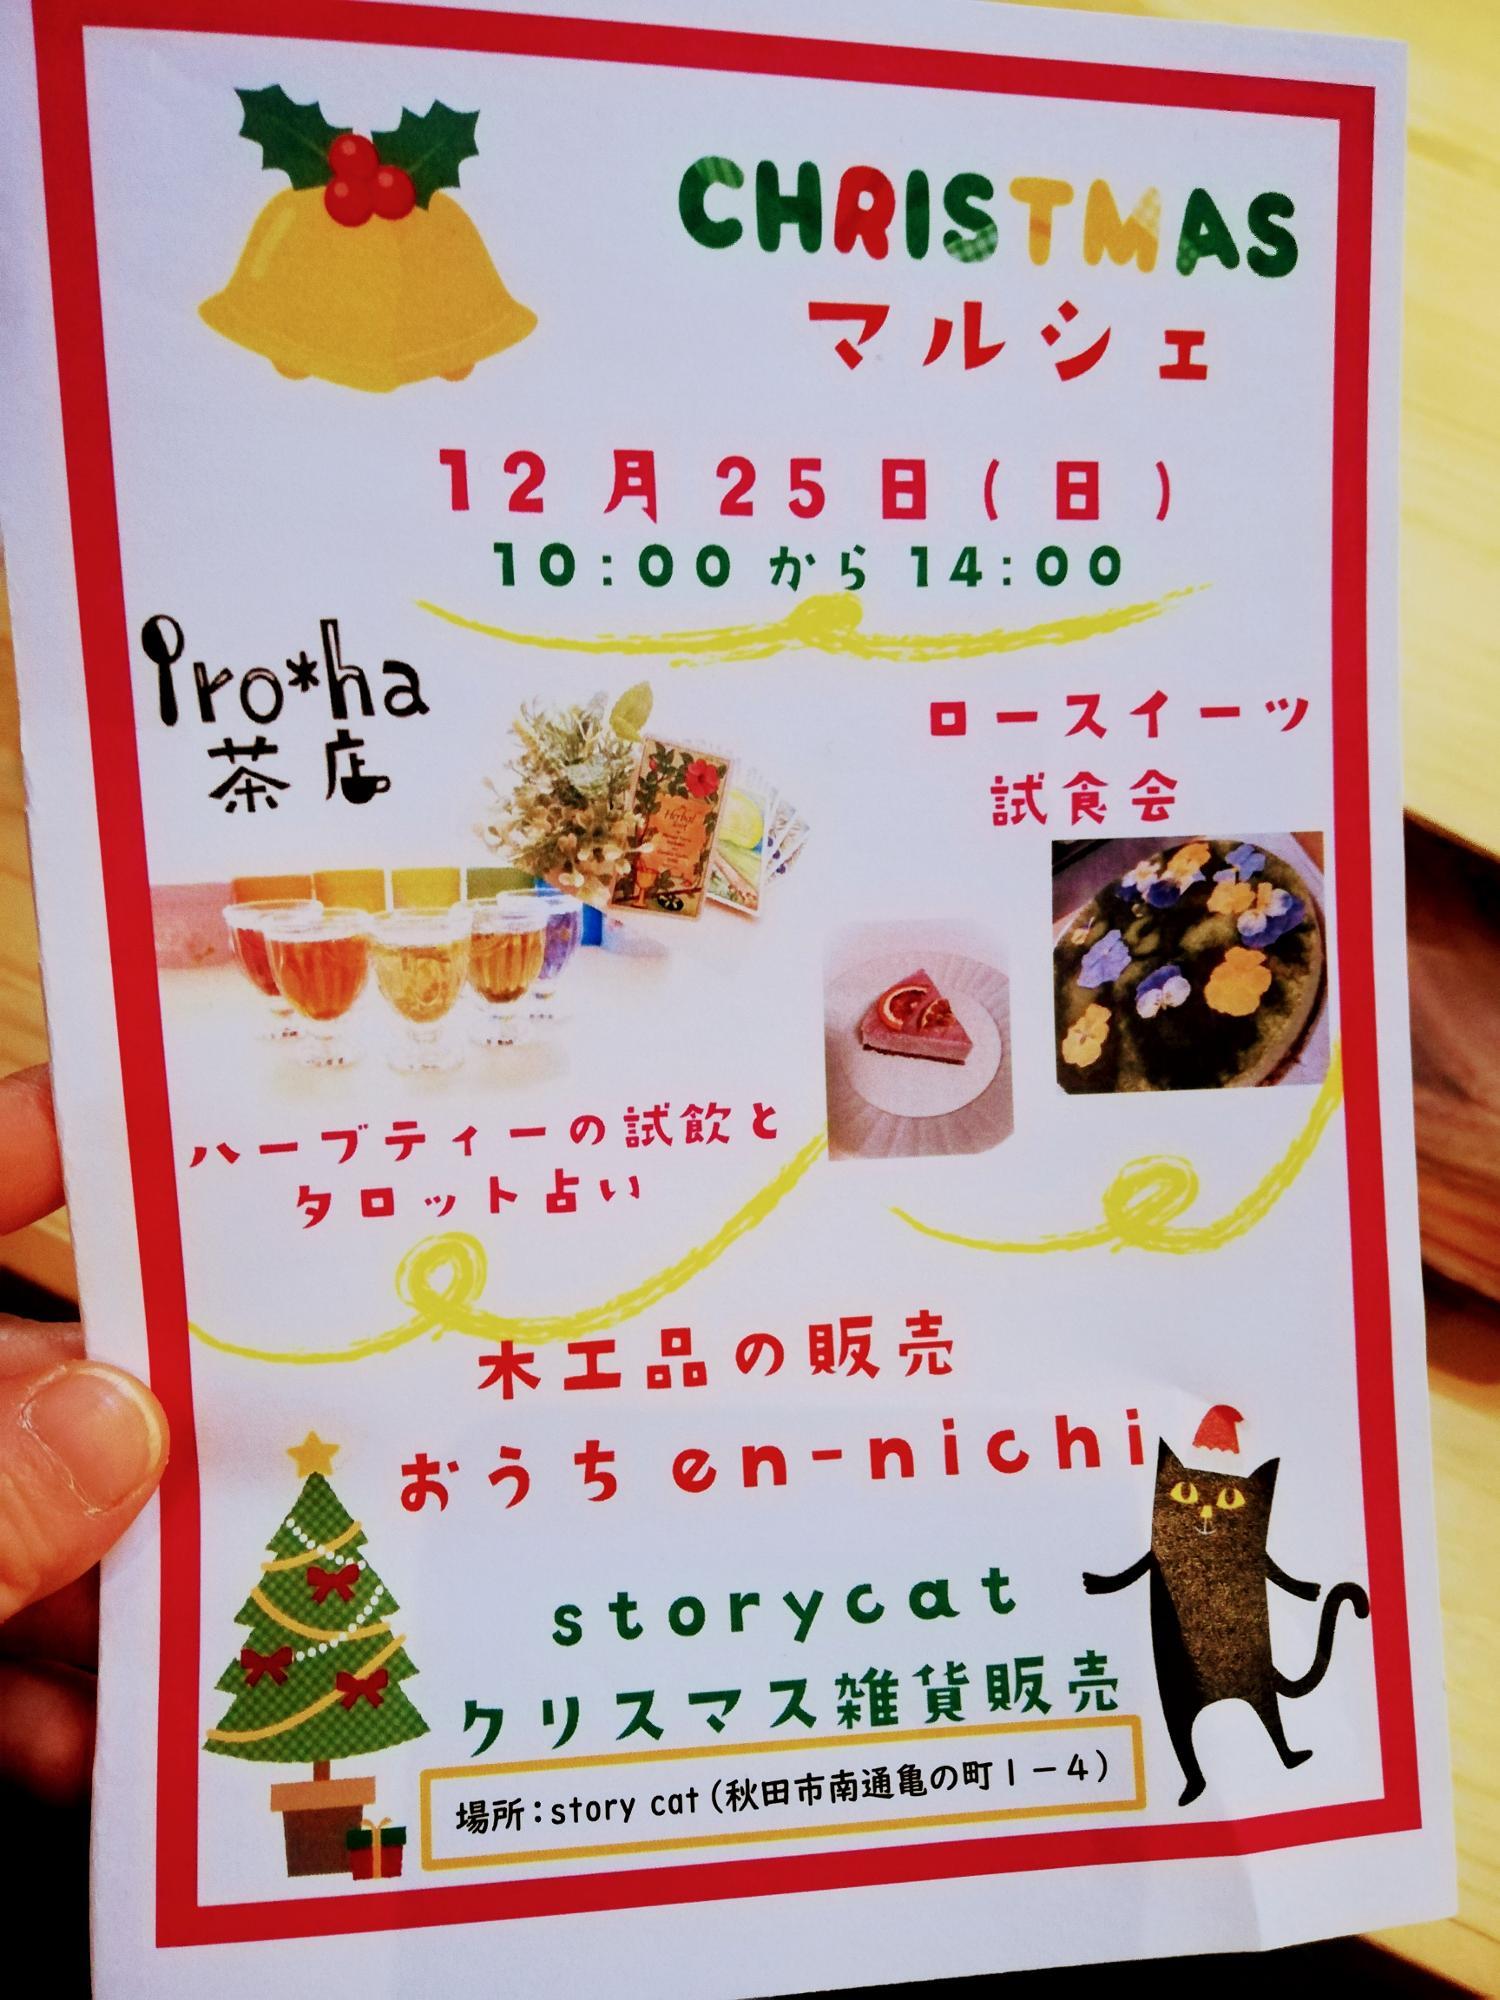 CHRISTMAS
マルシェ
12月25日(日)
10:00から14:00
iro*ha
茶店
ロースイーツ
試食会
Herbal
ハーブティーの試飲と
タロット占い
木工品の販売
おうちen-nichi
storycat
クリスマス雑貨販売
場所：story cat (秋田市南通亀の町1－4)